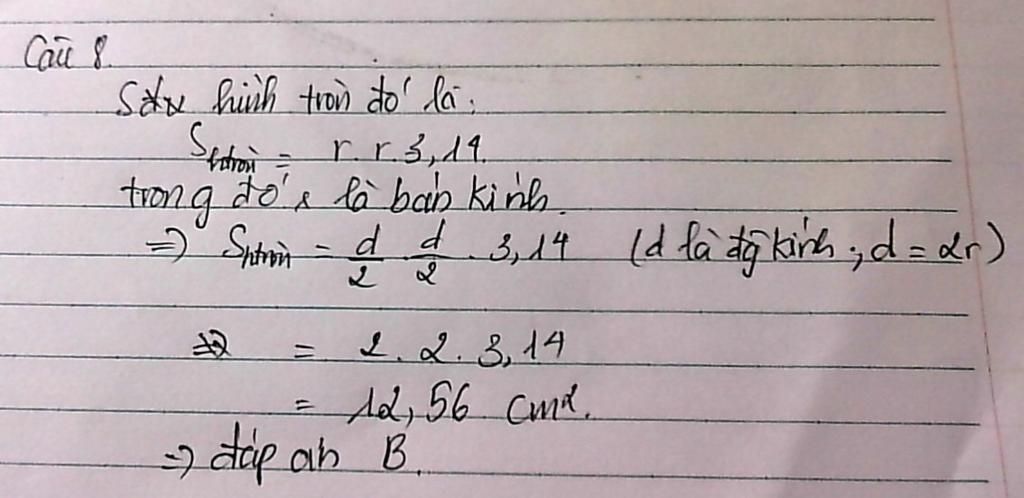 Câu 8.
S hình tròn đó là:
S htròn = r. r. 3,14.
trong đó r là bán kính.
=> S htròn = d/2 . d/2 . 3,14 (d là đg kính ; d = 2r)
= 2. 2. 3, 14
= 12, 56 cm2.
=> đáp án B.